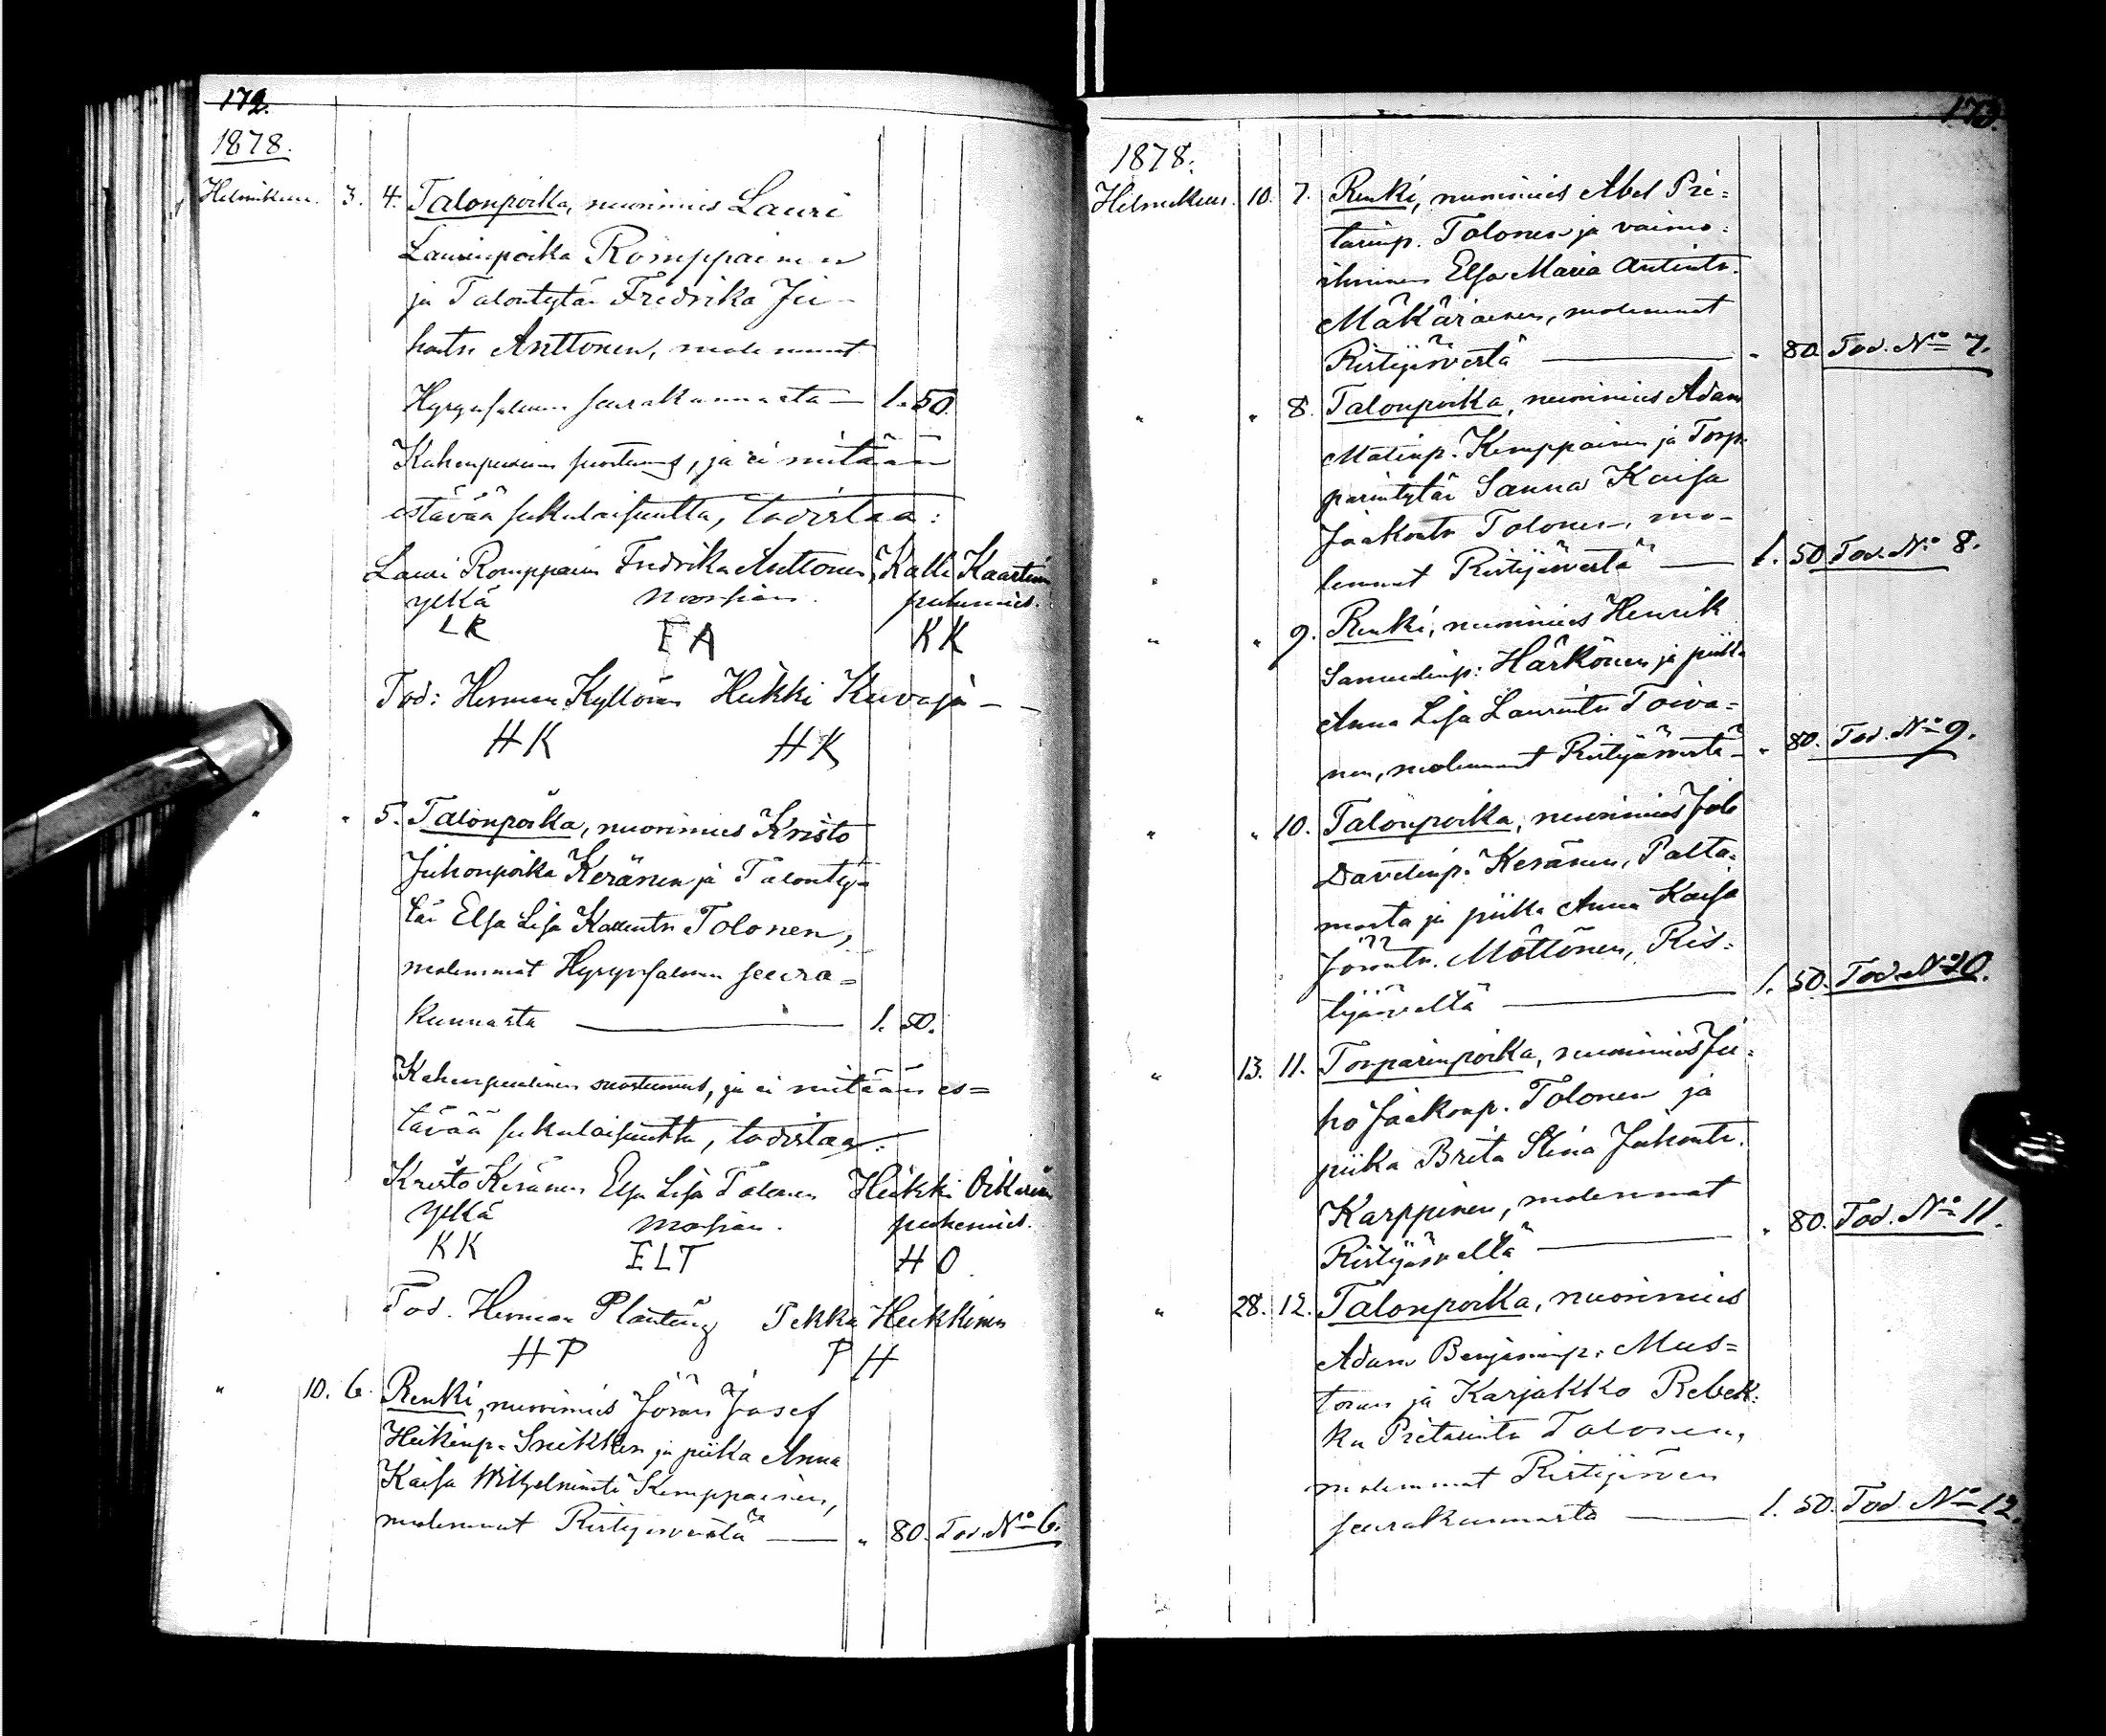 172.
1878.
Helmikuu. 3. 4. Talonpoika, nuorimies Lauri
Laurinpoika Romppainen
ja Talontytär Fredrika Ju-
hontr Anttonen, molemmat
Hyrynsalmen seurakunnasta — 1. 50.
Kahenpuolinen suostumus, ja ei mitään
estävää sukulaisuutta, todistaa:
Lauri Romppainen Fredrika Anttonen, Kalle
ylkä morsian. puhemies.
LR FA KK
Tod: Herman Kyllönen Heikki
HK HK
" " 5. Talonpoika, nuorimies Kristo
Juhonpoika Keränen ja Talonty-
tär Elsa Lisa Tolonen,
molemmat Hyrynsalmen seura=
kunnasta — 1. 50.
Kahenpuolinen suostumus, ja ei mitään es=
tävää sukulaisuutta, todistaa:
Kristo Keränen Elsa Lisa Tolonen Heikki Oikarinen
ylkä morsian. puhemies.
KK ELT HO
Tod. Herman Pekka Heikkinen
HP PH
" 10. 6. Renki, nuorimies Jöran Josef
Heikinp. ja piika Anna
Kaisa Wilhelmintr Kemppainen,
molemmat Ristijärveltä — " 80. Tod. No 6.
173.
1878.
Helmikuu. 10. 7. Renki, nuorimies Abel Pie=
tarinp. Tolonen ja vaimo=
ihminen Elsa Maria Antintr.
Mäkäräinen, molemmat
Ristijärveltä — " 80. Tod. No 7.
" " 8. Talonpoika, nuorimies Adam
Matinp. Kemppainen ja Torp-
parintytär Sanna Kaisa
Jaakontr Tolonen, mo-
lemmat Ristijärveltä — 1. 50. Tod. No 8.
" " 9. Renki, nuorimies Henrik
Samuelinp. Härkönen ja piika
Anna Lisa Laurintr Toiva=
nen, molemmat Ristijärveltä — " 80. Tod. No 9.
" " 10. Talonpoika, nuorimies Job
Davidinp. Keränen, Palta=
mosta ja piika Anna Kaisa
Jörantr. Möttönen, Ris=
tijärveltä — 1. 50. Tod. No 10.
" 13. 11. Torparinpoika, nuorimies Ju=
ho Jaakonp. Tolonen ja
piika Brita Stina Juhontr.
Karppinen, molemmat
Ristijärveltä — " 80. Tod. No 11.
" 28. 12. Talonpoika, nuorimies
Adam Benjaminp. Mus=
tonen ja Karjakko Rebek=
ka Pietarintr Tolonen,
molemmat Ristijärven
seurakunnasta — 1. 50. Tod. No 12.